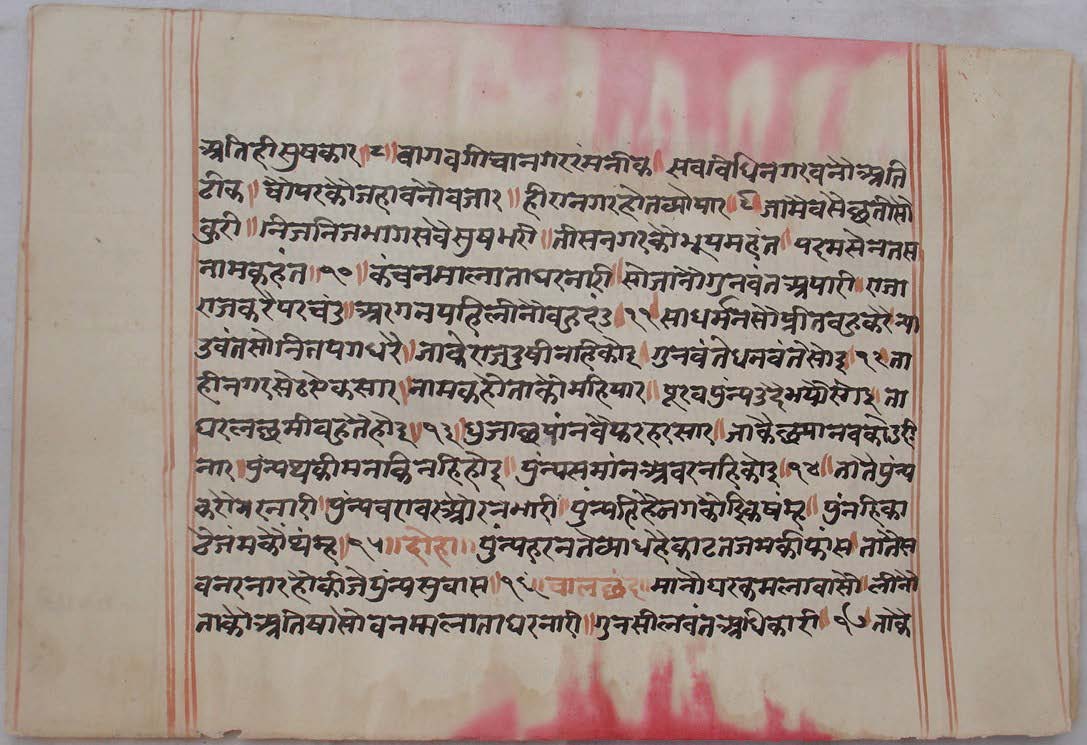 अतिहीसुषकार ॥८॥ बागवगीचानगररंमनीक ॥ सवविधिनगरवनौअति
ठीक ॥ चौपरकौजहावनौबजार ॥ हीरानगरहोतव्यौपार ॥९॥ जामेवसेछतीसौ
कुरी ॥ निजनिजभागसवैसुषभरी ॥ तीसनगरकौभूपमहंत ॥ पदमसेनतस
नामकहंत ॥१०॥ कंचनमालाताघरनारी ॥ सोजानौगुनवंतअपारी ॥ राजा
राजकरैपरचंड ॥ अरगनपहिलीनौवहुदंड ॥११॥ साधर्मनसौप्रीतवहुकरै ॥ न्या
उवंतसोनितपगधरै ॥ जाकेराजदुषीनहिकोइ ॥ गुनवंतेधनवंतेसोइ ॥१२॥ ता
हीनगरसेठऐकसार ॥ नामकहीताकोमहिपार ॥ पूरवपुंन्यउदेभयौसोइ ॥ ता
घरलछमीवहुतेहोइ ॥१३॥ धुजाछपांनवैफरहरसार ॥ जाकैछपानवकोउरी
नार ॥ पुंन्यथकीमनाकिनहिहोइ ॥ पुंन्यसमांनअवरनहिकोइ ॥१४॥ तातेपुंन्य
करोभरनारी ॥ पुंन्यवरावरऔरनभारी ॥ पुंन्यहि पुंनहिका
टेजंमकौ ॥१५॥ दोहा ॥ पुंन्यहरनतेव्याधहैकाटतजमकीफांस ॥ तातैस
वनरनारहोकीजैपुंन्यसुवास ॥१६॥ चालछंद ॥ मानौघरकमलावासौ ॥ लीनौ
ताकोअतिषासो ॥ वनमालाताघरनारी ॥ गुनसीलवंतअधिकारी ॥१७॥ ताकै